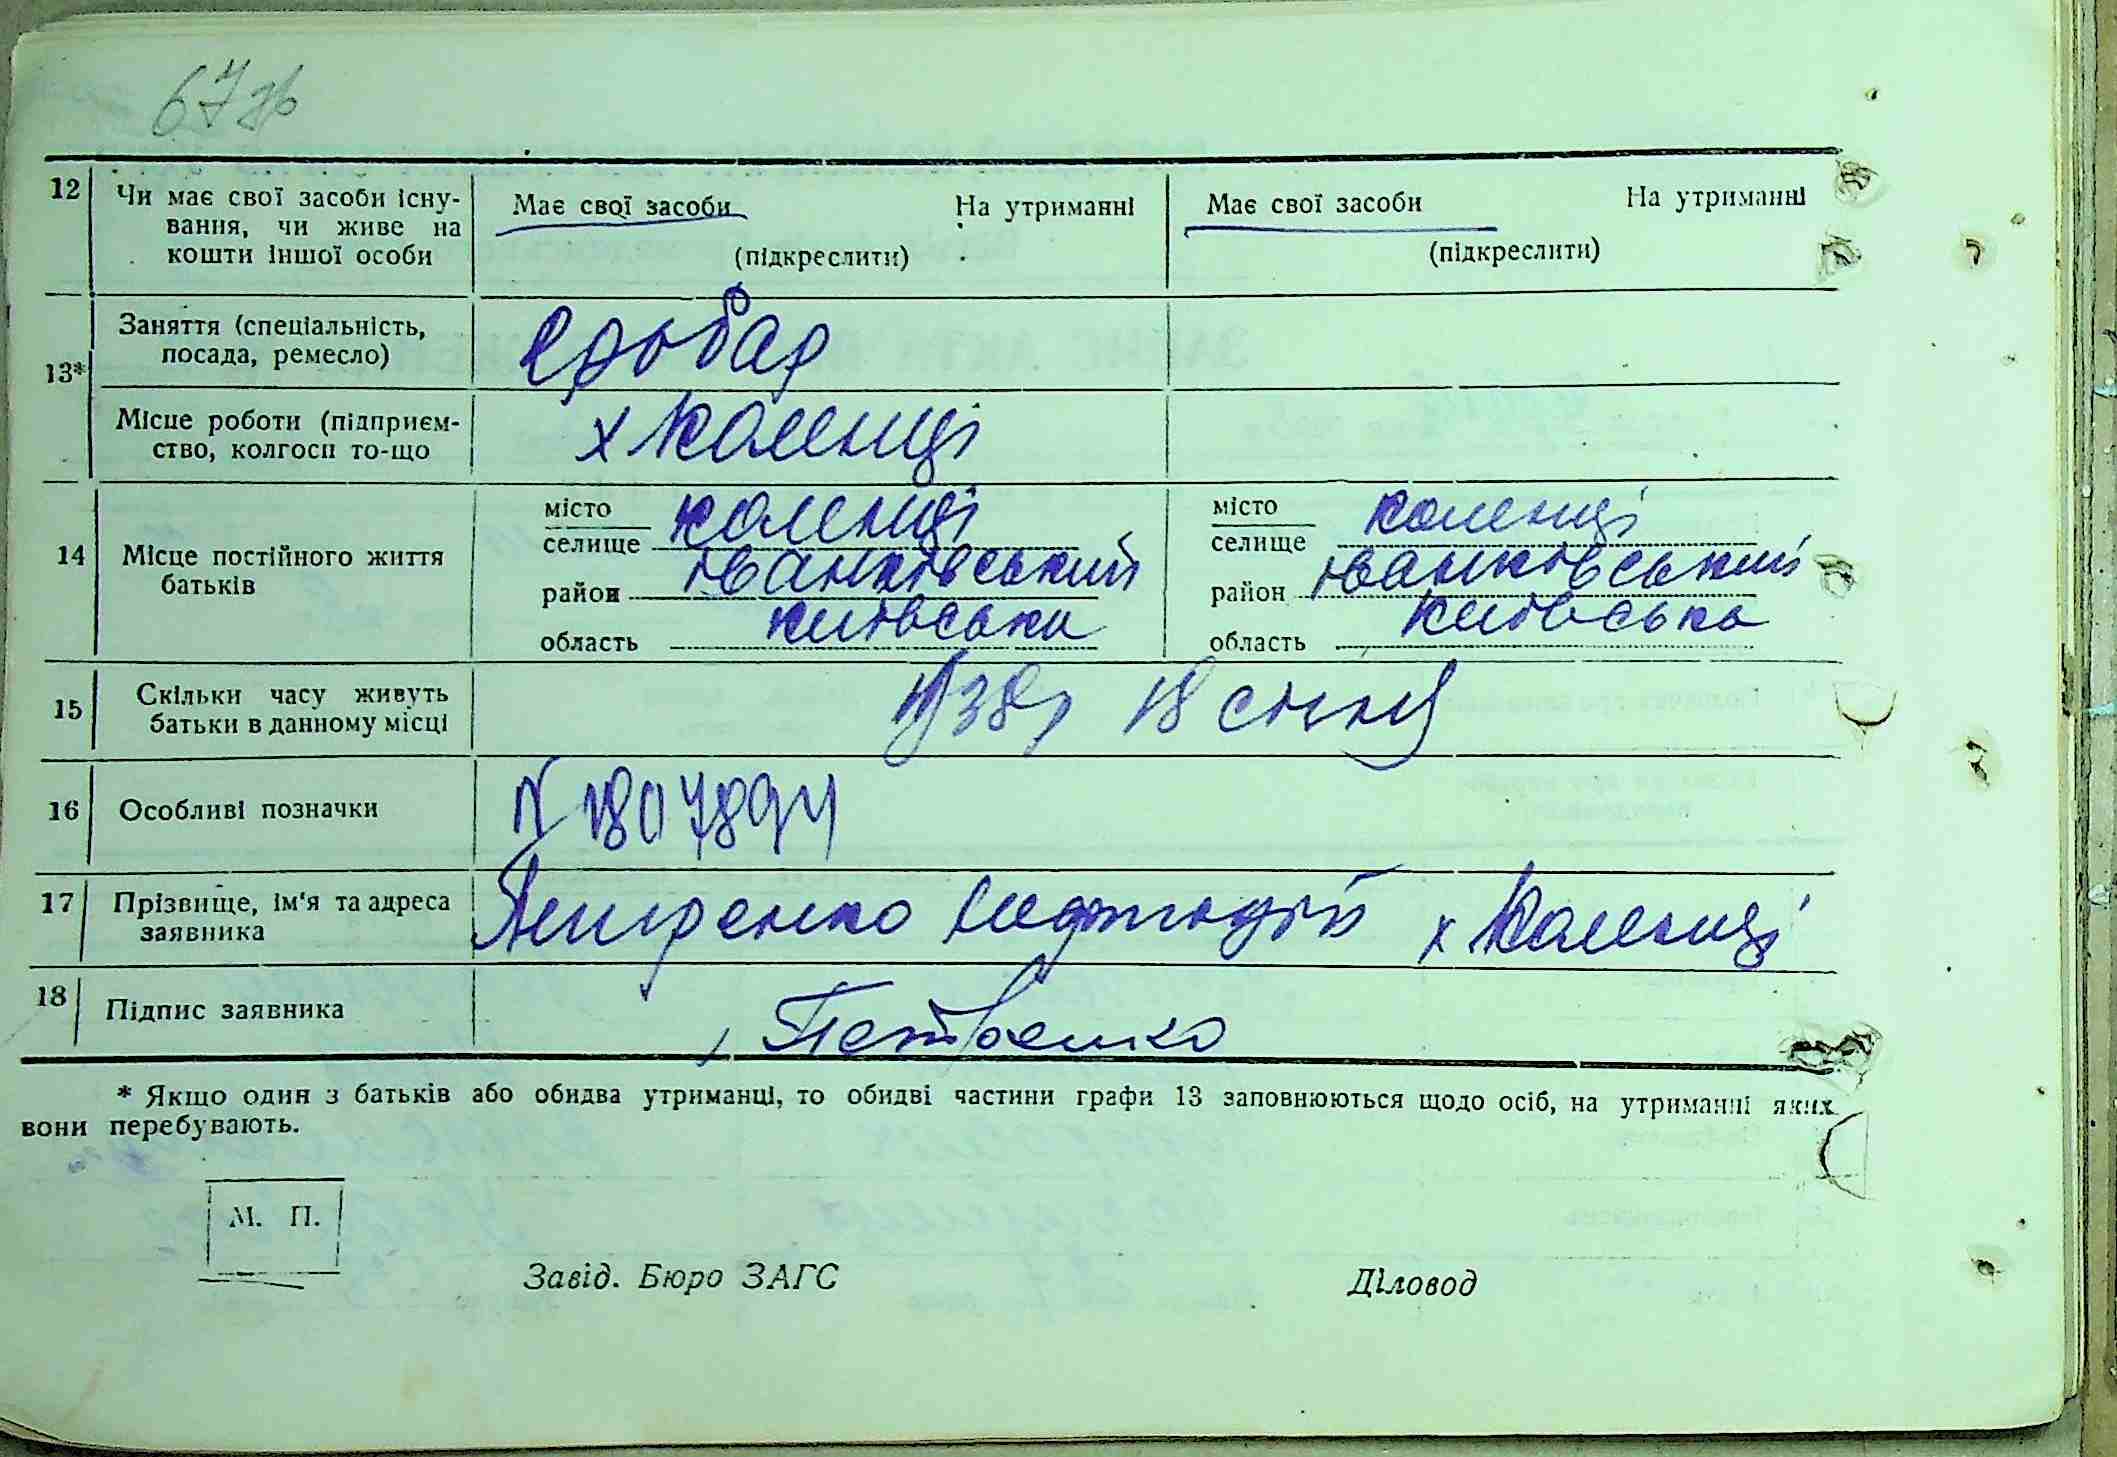 67зв
12 Чи має свої засоби існу-
вання, чи живе на
кошти іншої особи
Має свої засоби На утриманні
(підкреслити)
Має свої засоби На утриманні
(підкреслити)
13*
Заняття (спеціальність,
посада, ремесло)
Місце роботи (підприєм-
ство, колгосп то-що
х Коленці
14 Місце постійного життя
батьків
місто
селище Коленці
район Іванківський
область Київська
місто
селище Коленці
район Іванківський
область Київська
15 Скільки часу живуть
батьки в данному місці
1938р 18 січня
16 Особливі позначки
N 1807894
17 Прізвище, ім'я та адреса
заявника
Петренко х Коленці
18 Підпис заявника
Петренко
* Якщо один з батьків або обидва утриманці, то обидві частини графи 13 заповнюються щодо осіб, на утриманні яких
вони перебувають.
М. П.
Завід. Бюро ЗАГС Діловод